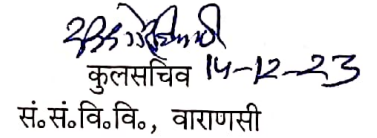 कुलसचिव 14-12-23
सं॰सं॰वि॰वि॰, वाराणसी